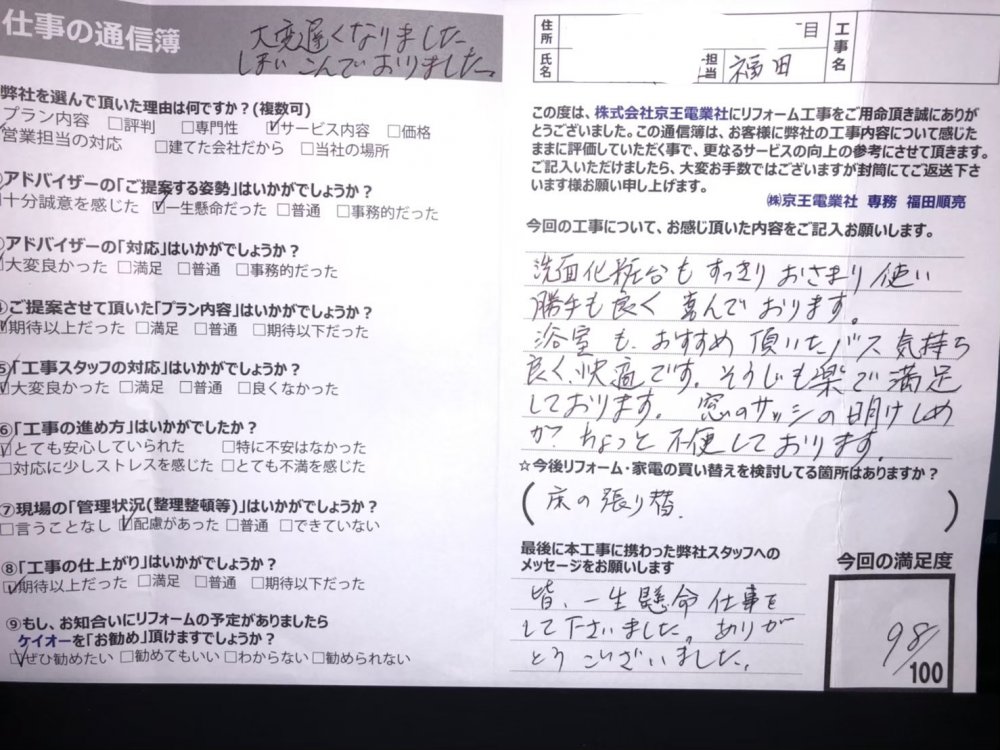 仕事の通信簿
大変遅くなりました
しまいこんでおりました。
弊社を選んで頂いた理由は何ですか？(複数可)
プラン内容 □評判 □専門性 ☑サービス内容 □価格
営業担当の対応 □建てた会社だから □当社の場所
アドバイザーの「ご提案する姿勢」はいかがでしょうか？
十分誠意を感じた ☑一生懸命だった □普通 □事務的だった
アドバイザーの「対応」はいかがでしょうか？
☑大変良かった □満足 □普通 □事務的だった
④ご提案させて頂いた「プラン内容」はいかがでしょうか？
☑期待以上だった □満足 □普通 □期待以下だった
⑤「工事スタッフの対応」はいかがでしょうか？
☑大変良かった □満足 □普通 □良くなかった
⑥「工事の進め方」はいかがでしたか？
☑とても安心していられた □特に不安はなかった
□対応に少しストレスを感じた □とても不満を感じた
⑦現場の「管理状況(整理整頓等)」はいかがでしょうか？
□言うことなし ☑配慮があった □普通 □できていない
⑧「工事の仕上がり」はいかがでしょうか？
☑期待以上だった □満足 □普通 □期待以下だった
⑨もし、お知合いにリフォームの予定がありましたら
ケイオーを「お勧め」頂けますでしょうか？
☑ぜひ勧めたい □勧めてもいい □わからない □勧められない
住所 目
氏名 担当 福田
工事名
この度は、株式会社京王電業社にリフォーム工事をご用命頂き誠にありが
とうございました。この通信簿は、お客様に弊社の工事内容について感じた
ままに評価していただく事で、更なるサービスの向上の参考にさせて頂きます。
ご記入いただけましたら、大変お手数ではございますが封筒にてご返送下さ
います様お願い申し上げます。
㈱京王電業社 専務 福田順亮
今回の工事について、お感じ頂いた内容をご記入お願いします。
洗面化粧台もすっきりおさまり使い
勝手も良く喜んでおります。
浴室も、おすすめ頂いたバス気持ち
良く、快適です。そうじも楽で満足
しております。窓のサッシの明けしめ
がちょっと不便しております。
☆今後リフォーム・家電の買い替えを検討してる箇所はありますか？
(床の張り替.)
最後に本工事に携わった弊社スタッフへの
メッセージをお願いします
皆、一生懸命仕事を
して下さいました。ありが
とうございました。
今回の満足度
98/100